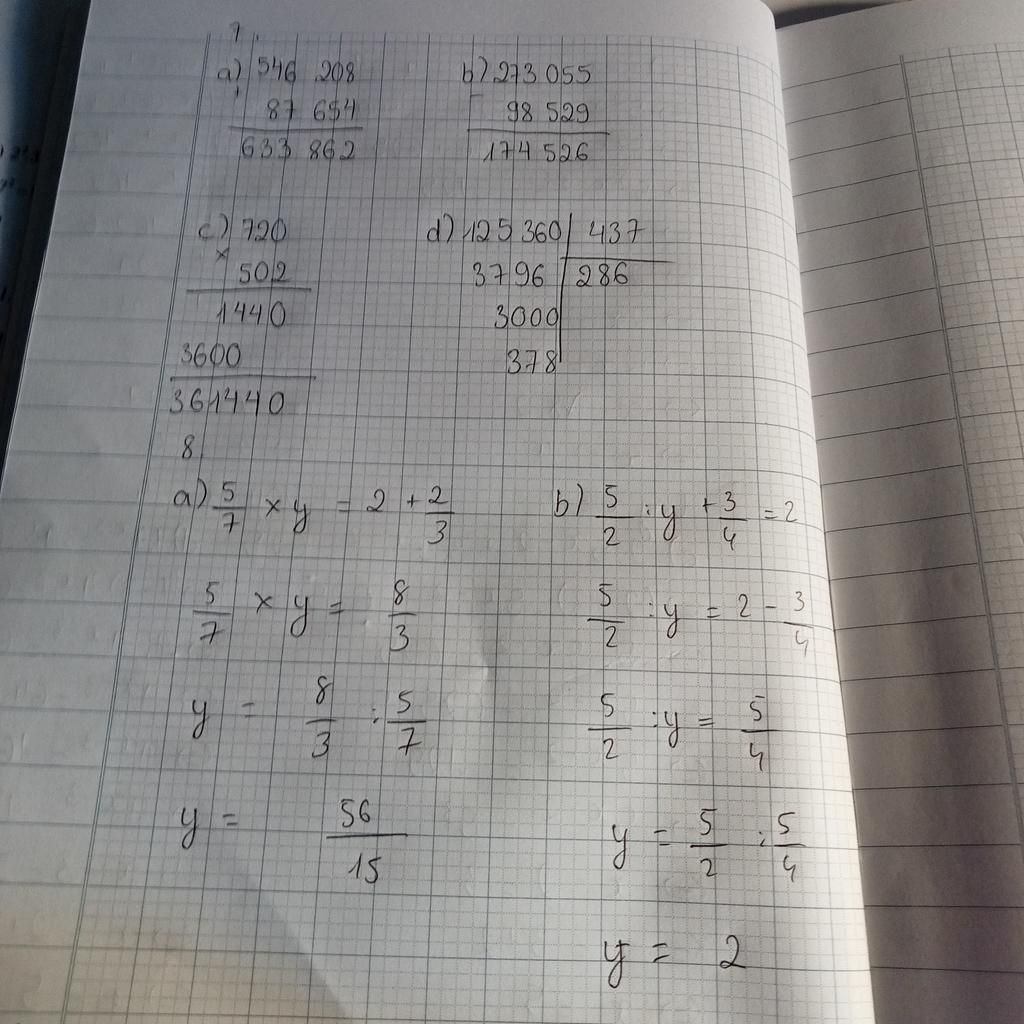 7.
a) 546 208
+
87 654
633 862
b) 273 055
-
98 529
174 526
c) 720
×
502
1440
3600
361440
d) 125 360 | 437
3796 | 286
3000
378
8
a) 5/7 × y = 2 + 2/3
5/7 × y = 8/3
y = 8/3 : 5/7
y = 56/15
b) 5/2 : y + 3/4 = 2
5/2 : y = 2 - 3/4
5/2 : y = 5/4
y = 5/2 : 5/4
y = 2